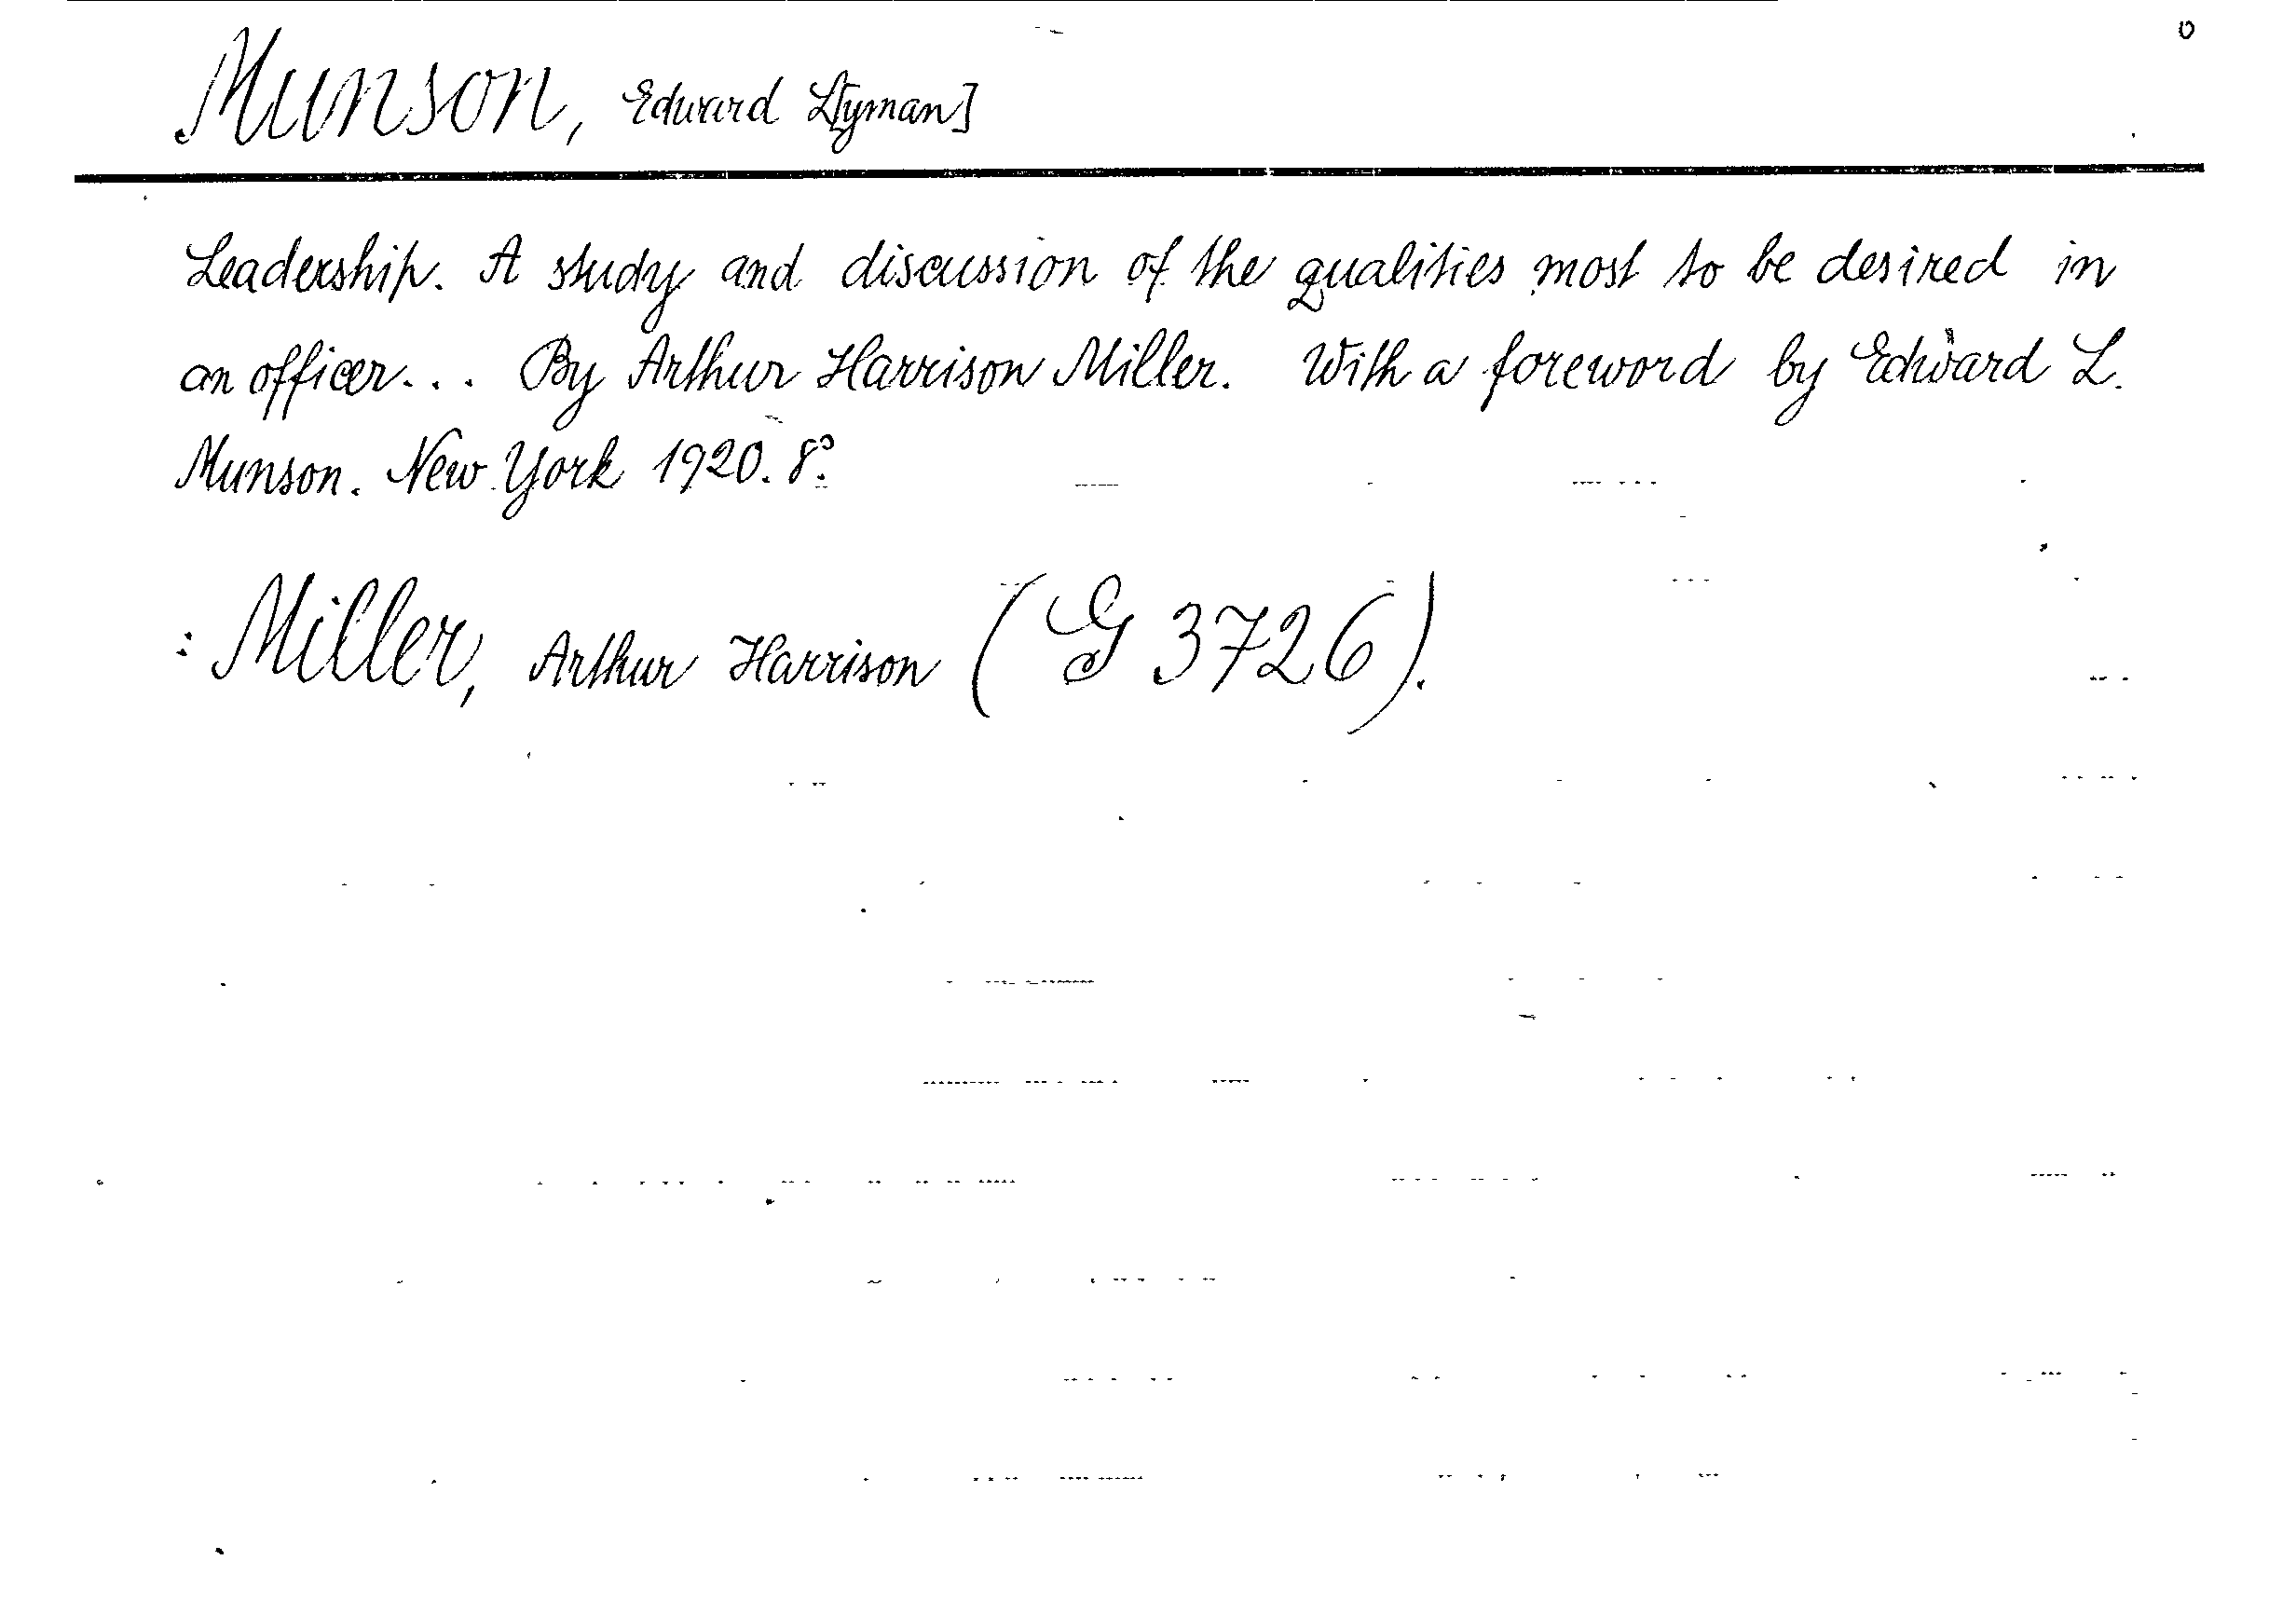 Munson, Edward L[yman]
Leadership. A study and discussion of the qualities most to be desired in
an officer... By Arthur Harrison Miller. With a foreword by Edward L.
Munson. New York 1920. 8°.
: Miller, Arthur Harrison (G 3726).